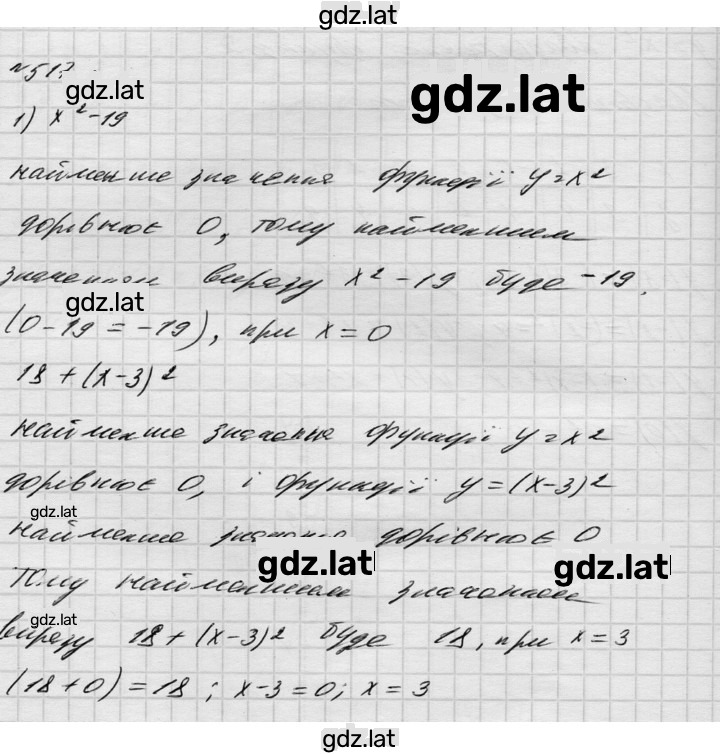 gdz.lat
№51?
gdz.lat
gdz.lat
1) x²-19
найменше значення функції y=x²
дорівнює 0, тому найменшим
значенням виразу x²-19 буде -19.
gdz.lat
(0-19=-19), при x=0
18+(x-3)²
найменше значення функції y=x²
дорівнює 0, і функції y=(x-3)²
gdz.lat
найменше значення дорівнює 0
gdz.lat
gdz.lat
Тому найменшим значенням
gdz.lat
виразу 18+(x-3)² буде 18, при x=3
(18+0)=18; x-3=0; x=3
gdz.lat